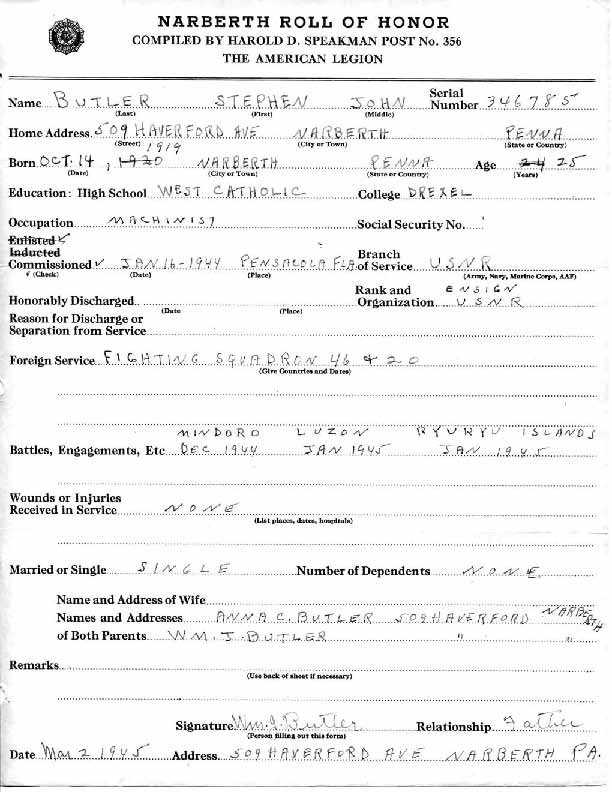 NARBERTH ROLL OF HONOR
COMPILED BY HAROLD D. SPEAKMAN POST No. 356
THE AMERICAN LEGION
Name BUTLER STEPHEN JOHN Serial Number 346785
(Last) (First) (Middle)
Home Address 509 HAVERFORD AVE NARBERTH PENNA
(Street) (City or Town) (State or Country)
1919
Born OCT. 14, 1920 NARBERTH PENNA Age 24 25
(Date) (City or Town) (State or Country) (Years)
Education: High School WEST CATHOLIC College DREXEL
Occupation MACHINIST Social Security No.
Enlisted
Inducted
Commissioned ✓ JAN 16-1944 PENSACOLA FLA Branch of Service USNR
✓ (Check) (Date) (Place) (Army, Navy, Marine Corps, AAF)
Honorably Discharged Rank and Organization ENSIGN USNR
(Date (Place)
Reason for Discharge or
Separation from Service
Foreign Service FIGHTING SQUADRON 46 & 20
(Give Countries and Dates)
MINDORO LUZON RYUKYU ISLANDS
Battles, Engagements, Etc DEC 1944 JAN 1945 JAN 1945
Wounds or Injuries
Received in Service NONE
(List places, dates, hospitals)
Married or Single SINGLE Number of Dependents NONE
Name and Address of Wife
Names and Addresses ANNA C. BUTLER 509 HAVERFORD NARBERTH
of Both Parents WM. J. BUTLER " "
Remarks
(Use back of sheet if necessary)
Signature Wm. J. Butler Relationship Father
(Person filling out this form)
Date Mar 2 1945 Address 509 HAVERFORD AVE NARBERTH PA.